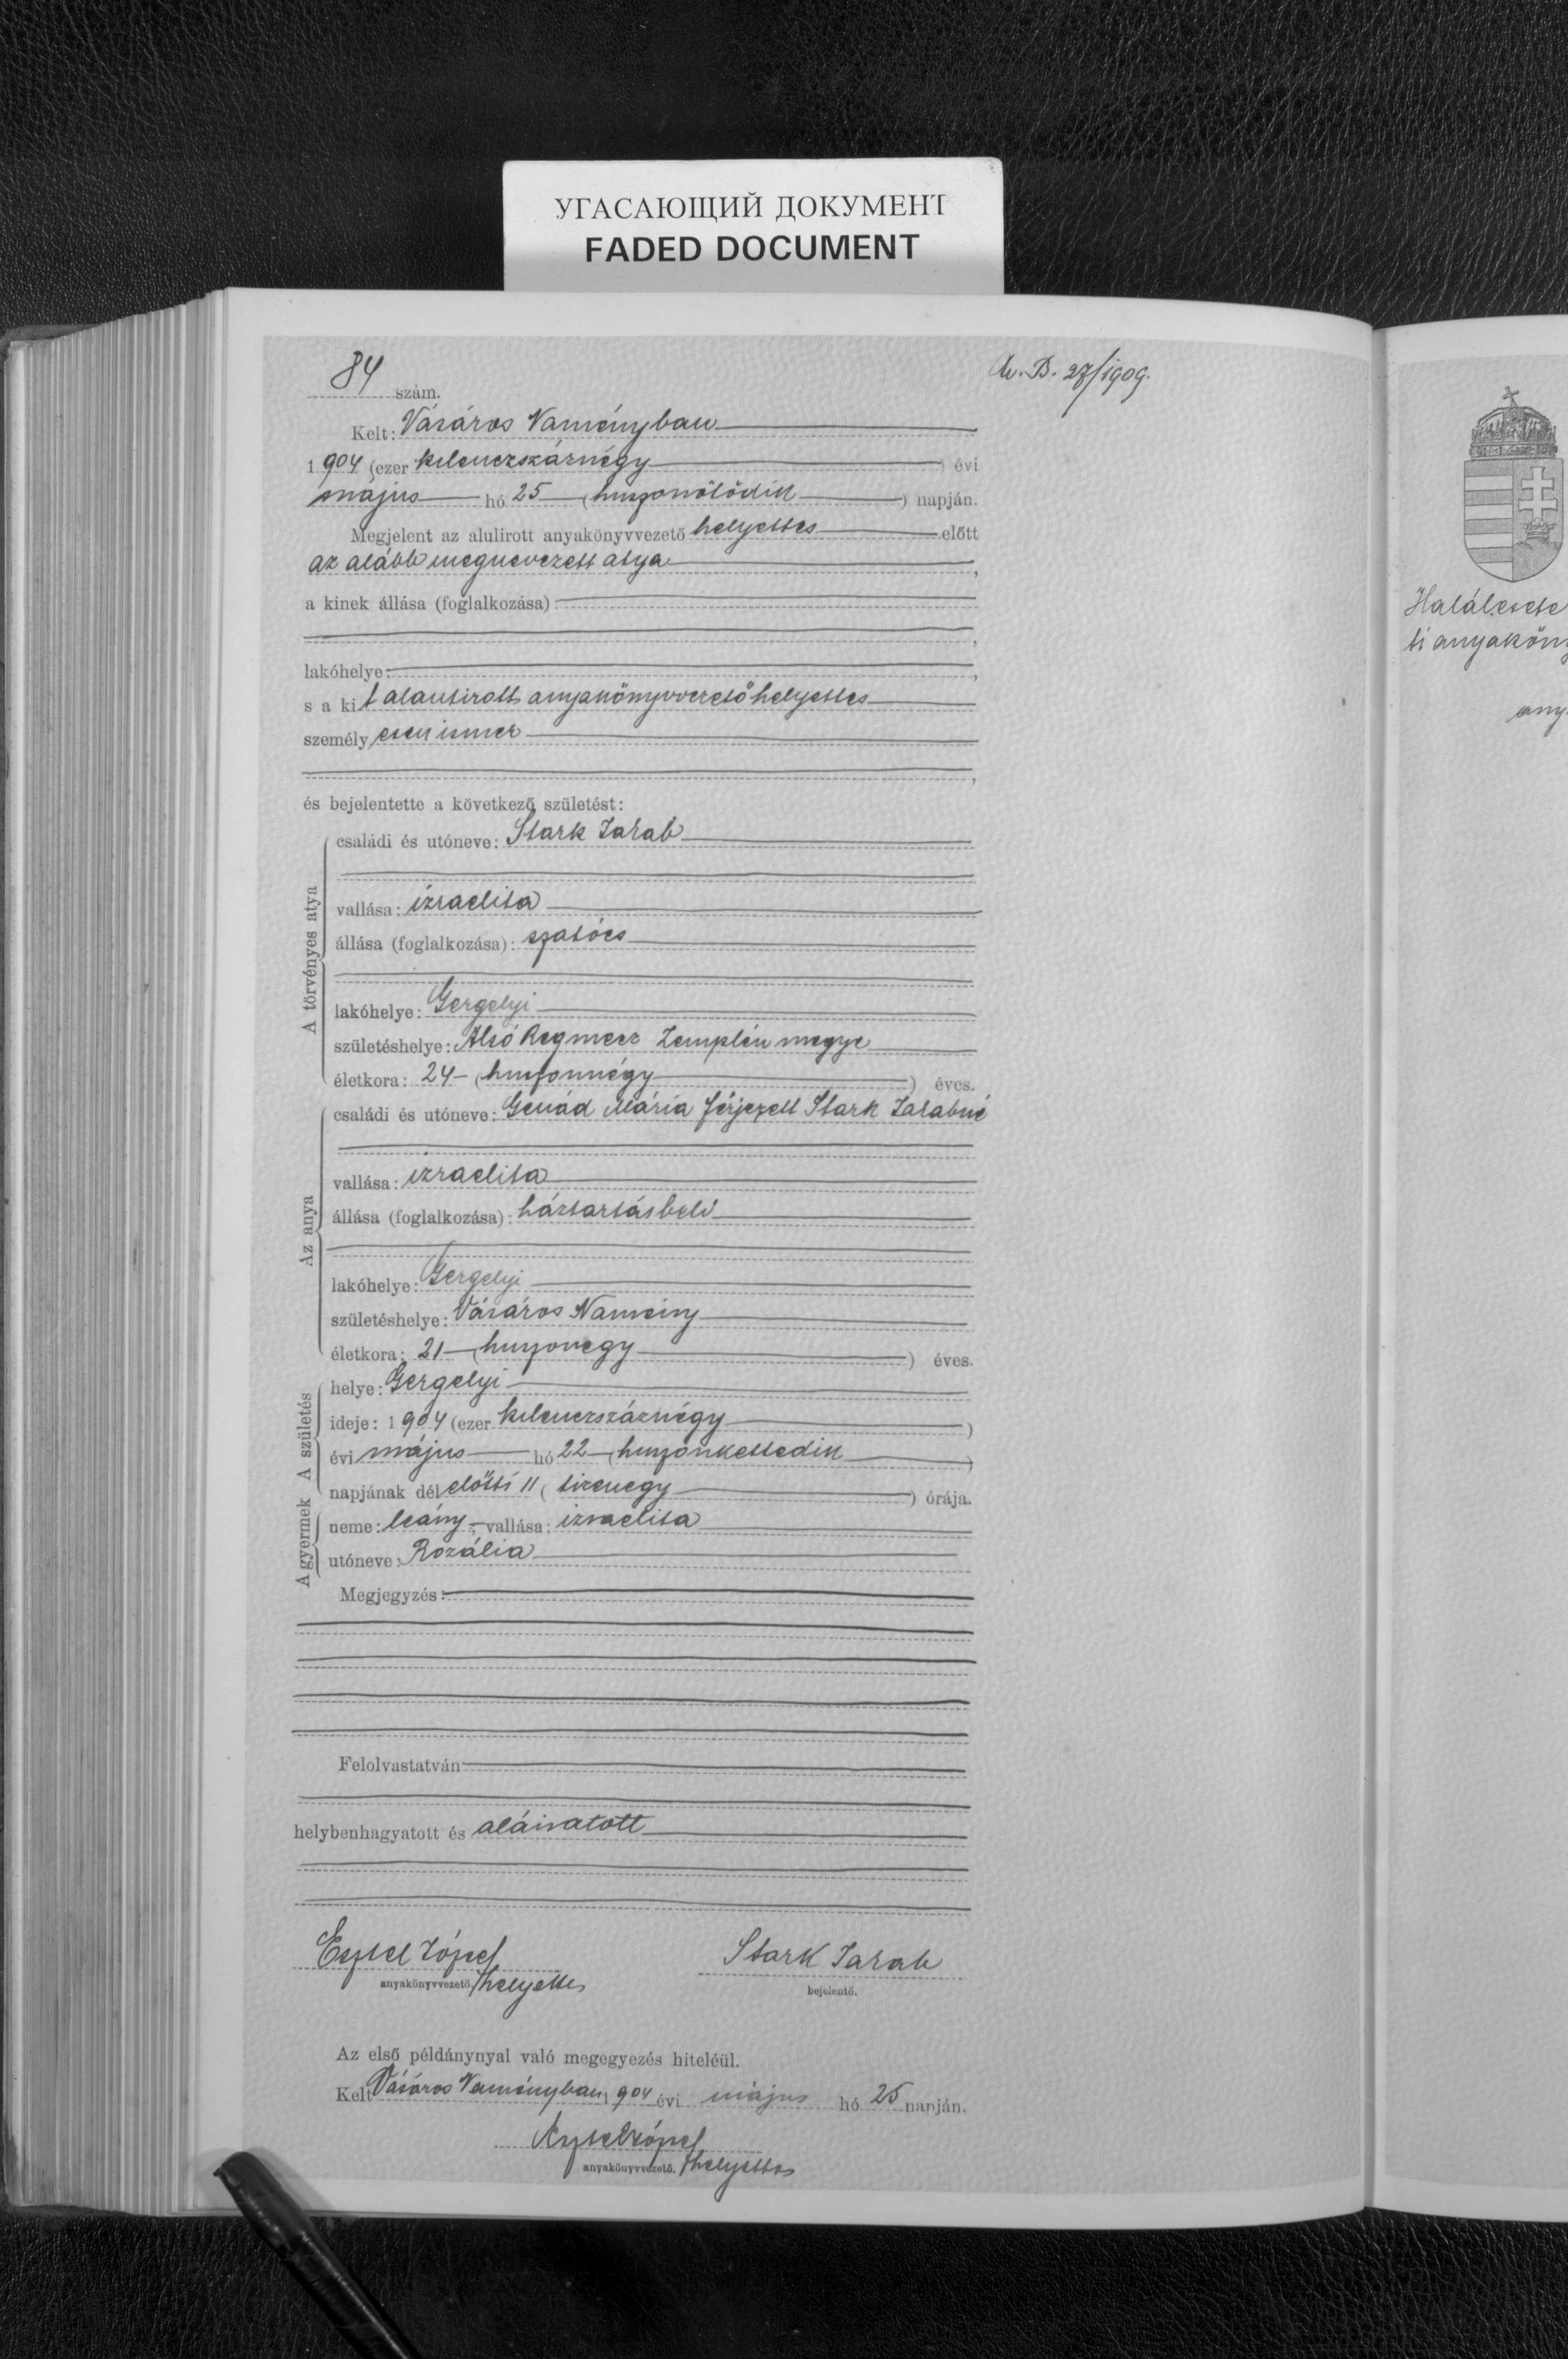 УГАСАЮЩИЙ ДОКУМЕНТ
FADED DOCUMENT
84 szám.
27/1909.
Kelt: Vásáros Naményban
1904 (ezer kilenczszáznégy) évi
május hó 25 (huszonötödik) napján.
Megjelent az alulirott anyakönyvvezető helyettes előtt
az alább megnevezett atya,
a kinek állása (foglalkozása):
lakóhelye:
s a kit alantirott anyakönyvvezető helyettes
személyesen ismer
és bejelentette a következő születést:
A törvényes atya
családi és utóneve: Stark Jakab
vallása: izraelita
állása (foglalkozása): szatócs
lakóhelye: Gergelyi
születéshelye: Alsó Regmecz Zemplén megye
életkora: 24 (huszonnégy) éves.
Az anya
családi és utóneve: Mária férjezett Stark Jakabné
vallása: izraelita
állása (foglalkozása): háztartásbeli
lakóhelye: Gergelyi
születéshelye: Vásáros Namény
életkora: 21 (huszonegy) éves.
A születés
helye: Gergelyi
ideje: 1904 (ezer kilenczszáznégy)
évi május hó 22 (huszonkettedik)
napjának délelőtti 11 (tizenegy) órája.
A gyermek
neme: leány; vallása: izraelita
utóneve: Rozália
Megjegyzés:
Felolvastatván
helybenhagyatott és aláiratott
József
Stark Jakab
anyakönyvvezető helyettes
bejelentő.
Az első példánynyal való megegyezés hiteléül.
Kelt Vásáros Naményban 1904 évi május hó 25 napján.
József
anyakönyvvezető. helyettes
Haláleset
ti anyaköny
any